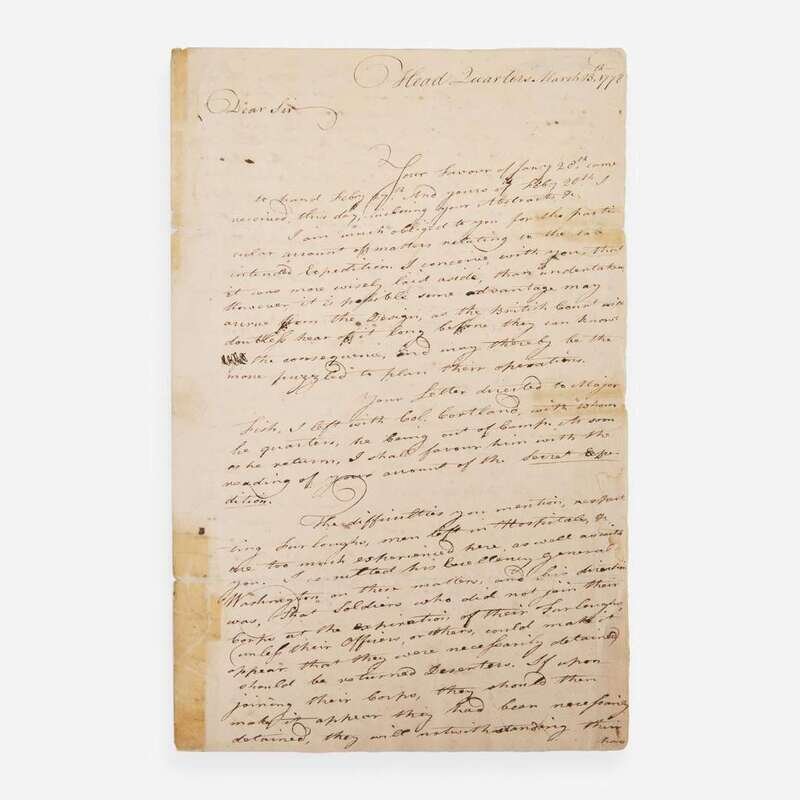 Head Quarters March 13th 1778
Dear Sir
Your Favour of Jany 28th came
to hand Feby 19th And yours of Feby 20th I
received, this day, inclosing your Abstracts, &c.
I am much obliged to you for the parti
cular account of matters relating to the
intended Expedition. I conceive with you, that
it was more wisely laid aside, than undertaken
However it is possible some advantage may
accrue from the Design, as the British Court will
doubtless hear of it long before they can know
the consequence, and may thereby be the
more puzzled to plan their operations.
Your Letter directed to Major
Fish, I left with Col. Cortland, with whom
he quarters, he being out of Camp. As soon
as he returns, I shall favour him with the
reading of your account of the Secret Expe-
dition.
The difficulties you mention, respect
ing Furloughs, men left in Hospitals, &c
are too much experienced here, as well as with
you. I consulted his Excellency General
Washington on these matters, and his direction
was, That Soldiers who did not join their
Corps at the expiration of their Furloughs,
unless their Officers, or others, could make it
appear that they were necessarily detained
should be returned Deserters. If upon
joining their Corps, they should then
make it appear they had been necessarily
detained, they will notwithstanding their
have